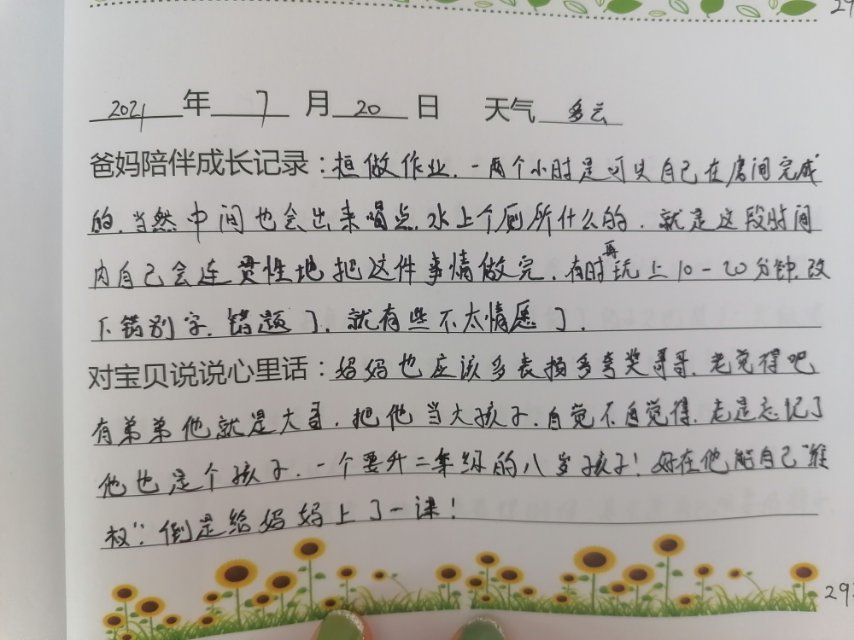 29
2021年7月20日 天气 多云
爸妈陪伴成长记录：桓做作业，一两个小时是可以自己在房间完成
的，当然中间也会出来喝点，水上个厕所什么的，就是这段时间
内自己会连贯性地把这件事情做完，有时再玩上10-20分钟，改
下错别字，错题了，就有些不太情愿了，
对宝贝说说心里话：妈妈也应该多表扬多夸奖哥哥，老觉得吧
有弟弟他就是大哥，把他当大孩子，自觉不自觉得，老是忘记了
他也是个孩子，一个要升二年级的八岁孩子！好在他能自己"维
权"，倒是给妈妈上了一课！
29